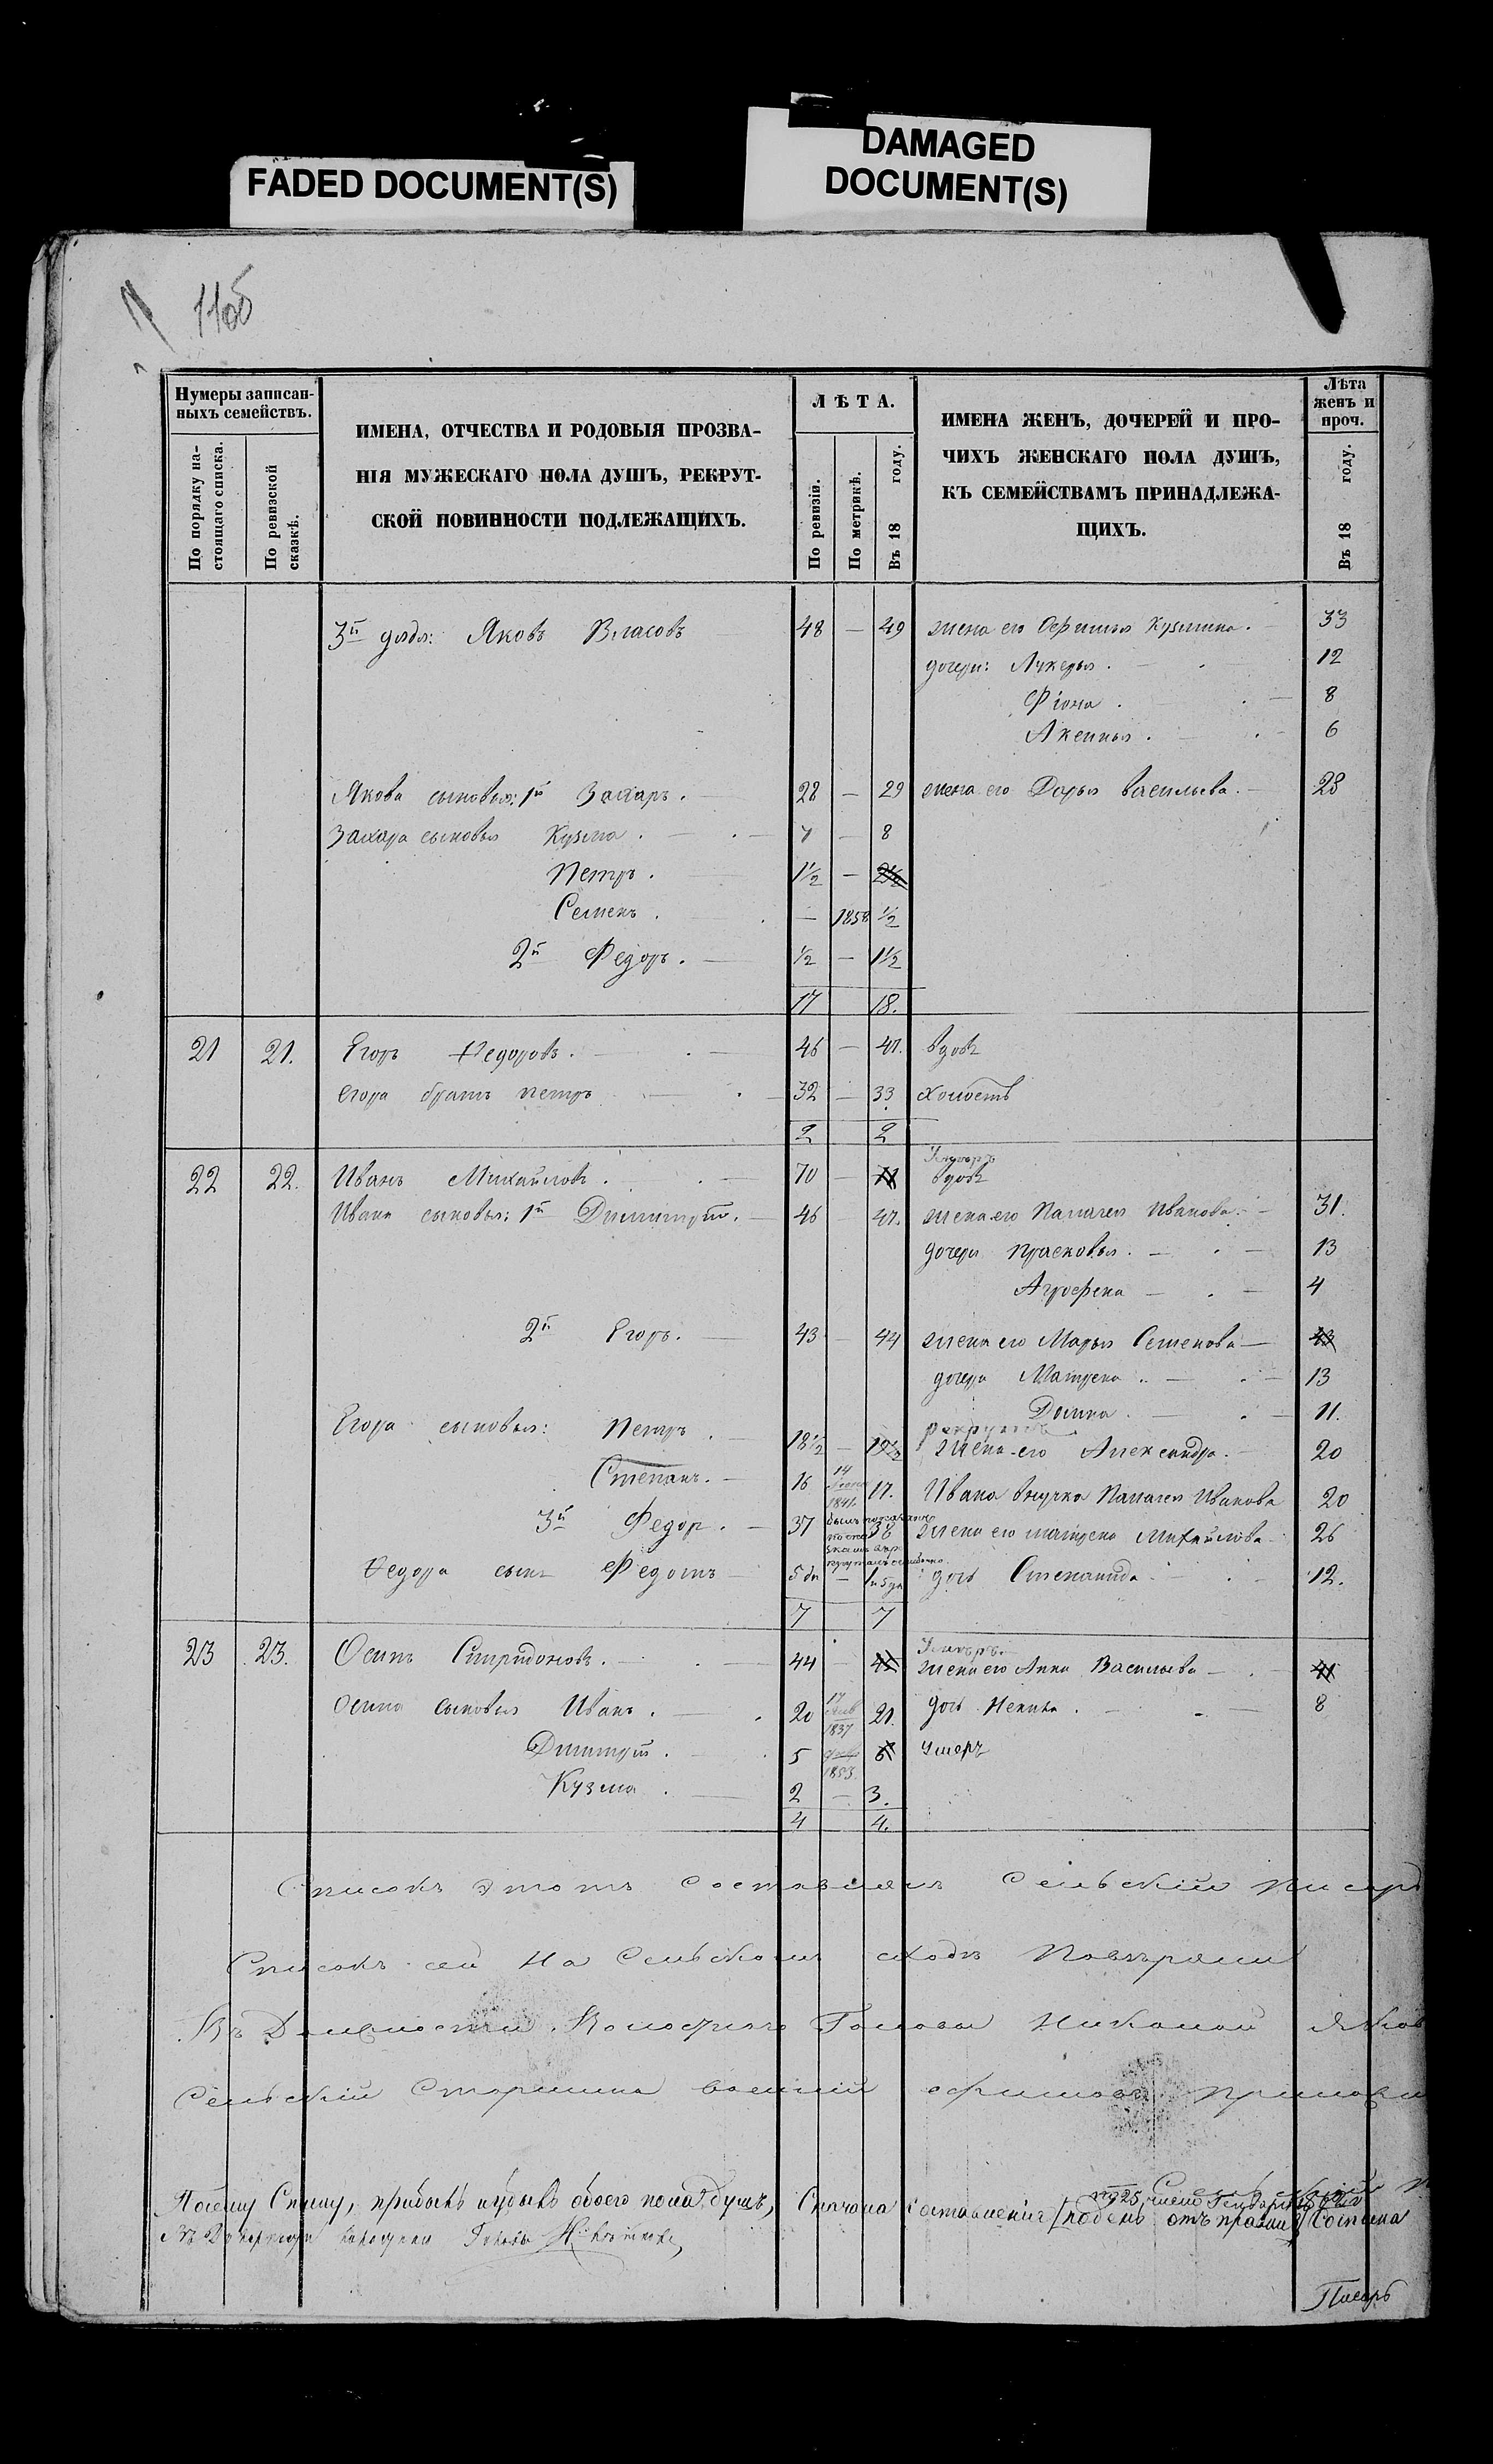 FADED DOCUMENT(S)
DAMAGED
DOCUMENT(S)
11об
Нумеры записан-
ныхъ семействъ.
По порядку на-
стоящаго списка.
По ревизской
сказкѣ.
ИМЕНА, ОТЧЕСТВА И РОДОВЫЯ ПРОЗВА-
НІЯ МУЖЕСКАГО ПОЛА ДУШЪ, РЕКРУТ-
СКОЙ ПОВИННОСТИ ПОДЛЕЖАЩИХЪ.
ЛѢТА.
По ревизіи.
По метрикѣ.
Въ 18 году.
ИМЕНА ЖЕНЪ, ДОЧЕРЕЙ И ПРО-
ЧИХЪ ЖЕНСКАГО ПОЛА ДУШЪ,
КЪ СЕМЕЙСТВАМЪ ПРИНАДЛЕЖА-
ЩИХЪ.
Лѣта
женъ и
проч.
Въ 18 году.
3й дядя: Яковъ Власовъ 48 — 49 жена его Кузмина. 33
дочери: Лукерья. 12
Фіона. 8
Аксинья. 6
Якова сыновья: 1й Захаръ. 28 — 29 жена его Дарья Васильева. 28
Захара сыновья Кузма. 7 — 8
Петръ. 1½ — 2½
Семенъ. — 1858 ½
2й Федоръ. ½ — 1½
17 18.
21 21. Егоръ Федоровъ. 46 — 47. вдовъ
Егора братъ Петръ 32 — 33 холостъ
2 2
Умеръ
22 22. Иванъ Михайловъ. 70 — 71 вдовъ
Ивана сыновья: 1й Димитрій. 46 — 47. жена его Палагея Иванова. 31.
дочери Прасковья. 13
Агрофена 4
2й Егоръ. 43 — 44 жена его Марья Семенова 43
дочери Матрена 13
Домна. 11.
рекрутъ
Егора сыновья: Петръ. 18½ — 19½ жена его Александра. 20
Степанъ. 16 14 1841. 17. Ивана внучка Палагея Иванова 20
3й Федор. 37 38 жена его Матрена Михайлова 26
Федора сынъ Федотъ 5 дн — 1 и 5 дн дочь Степанида 12.
7 7
Умеръ.
23 23. Осипъ Спиридоновъ. 44 — 45 жена его Анна Васильева 41
Осипа сыновья Иванъ. 20 17 1837 21. дочь 8
Димитрій. 5 1853. 6 умеръ
Кузма. 2 — 3.
4 4.
Списокъ этотъ составлялъ Сельскій писарь
Списокъ сей на Сельскомъ сходѣ повѣряли
Въ Должности Волостнаго Головы Яков
Сельскій Старшина
По сему Списку, прибыль и убыль обоего пола душъ, составленія
Писарь